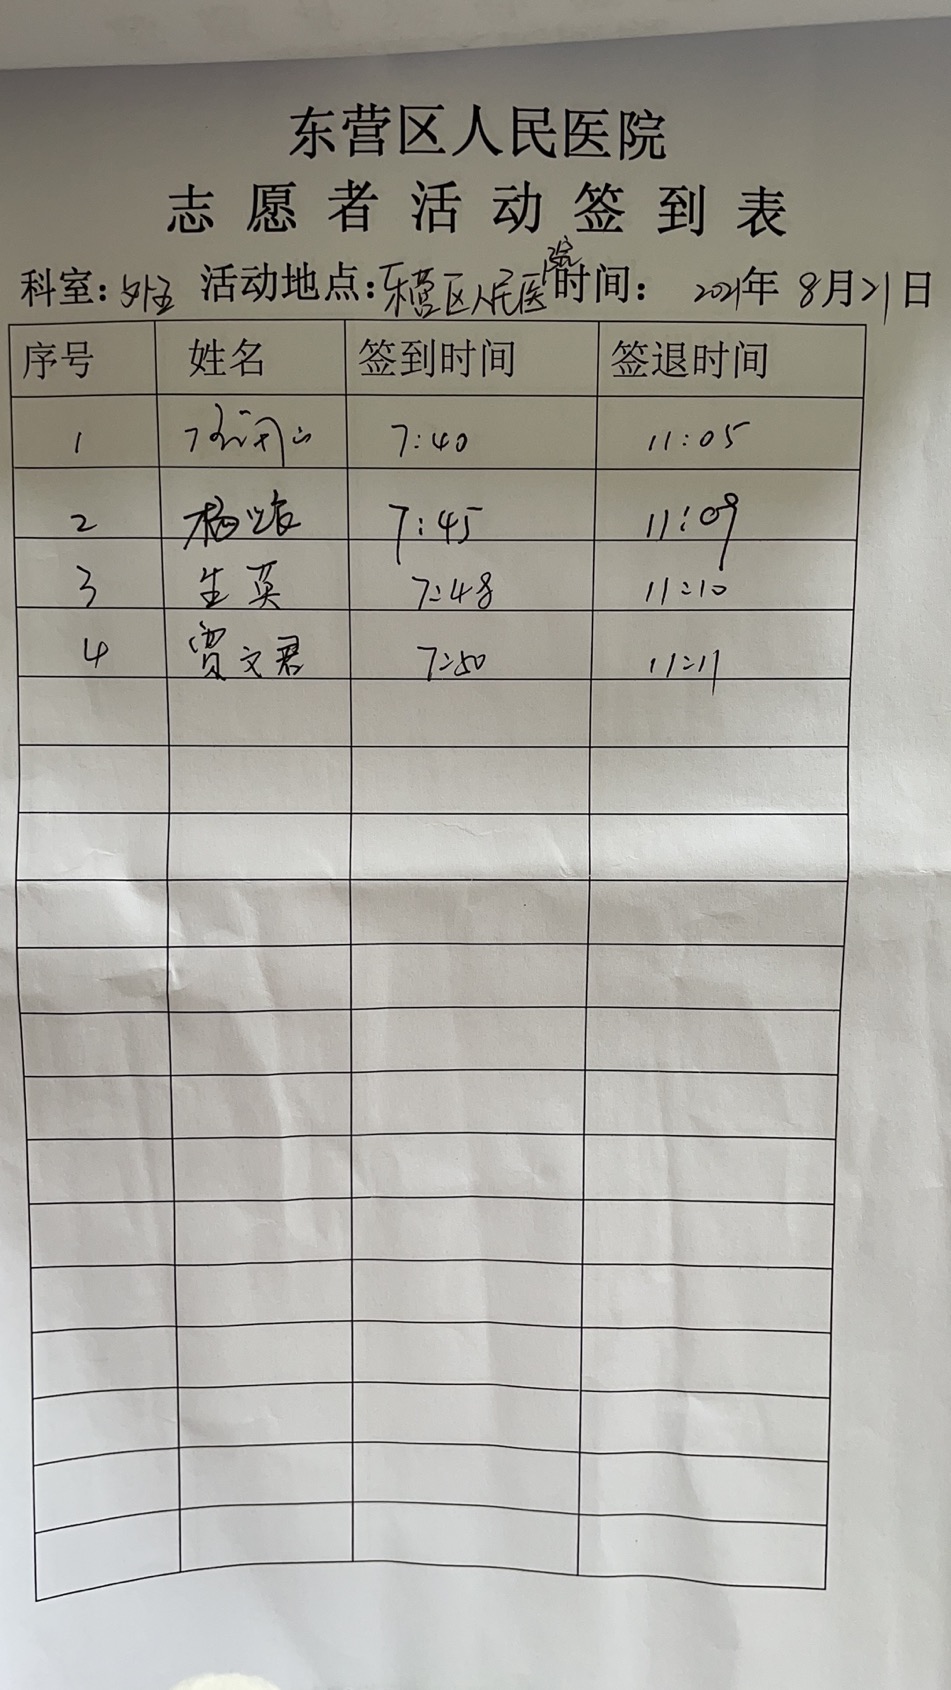 东营区人民医院
志愿者活动签到表
科室: 活动地点:东营区人民医院 时间: 2021年8月21日
序号 姓名 签到时间 签退时间
1 7:40 11:05
2 7:45 11:09
3 生英 7:48 11:10
4 贾文君 7:50 11:11